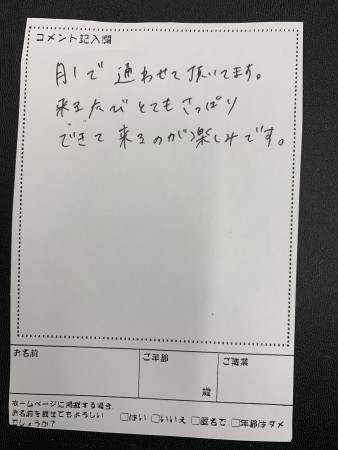 コメント記入欄
月1で通わせて頂いてます。
来るたびとてもさっぱり
できて来るのが楽しみです。
お名前
ご年齢
ご職業
歳
ホームページに掲載する場合、
お名前を載せてもよろしい
でしょうか?
□はい □いいえ □匿名で □年齢はダメ